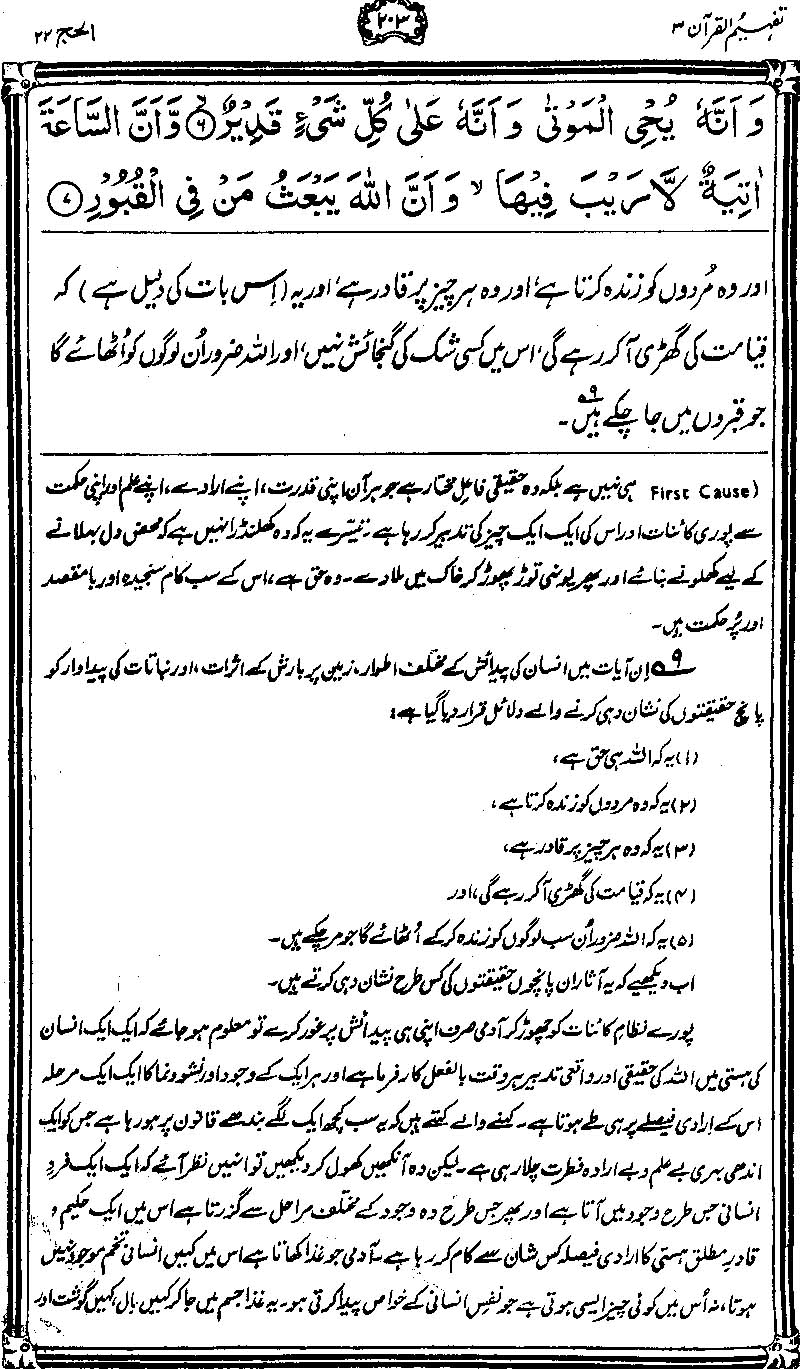 تفہیم القرآن ۳
۲۰۳
الحج ۲۲
وَ اَنَّهٗ يُحْيِ الْمَوْتٰى وَ اَنَّهٗ عَلٰى كُلِّ شَيْءٍ قَدِيْرٌ ۶ وَّ اَنَّ السَّاعَةَ
اٰتِيَةٌ لَّا رَيْبَ فِيْهَا ۙ وَ اَنَّ اللّٰهَ يَبْعَثُ مَنْ فِي الْقُبُوْرِ ۷
اور وہ مُردوں کو زندہ کرتا ہے، اور وہ ہر چیز پر قادر ہے، اور یہ (اِس بات کی دلیل ہے) کہ
قیامت کی گھڑی آکر رہے گی، اس میں کسی شک کی گنجائش نہیں، اور اللہ ضرور اُن لوگوں کو اُٹھائے گا
جو قبروں میں جا چکے ہیں۹۔
(First Cause ہی نہیں ہے بلکہ وہ حقیقی فاعلِ مختار ہے جو ہر آن اپنی قدرت، اپنے ارادے، اپنے علم اور اپنی حکمت
سے پوری کائنات اور اس کی ایک ایک چیز کی تدبیر کر رہا ہے۔ تیسرے یہ کہ وہ کھلنڈرا نہیں ہے کہ محض دل بہلانے
کے لیے کھلونے بنائے اور پھر یونہی توڑ پھوڑ کر خاک میں ملا دے۔ وہ حق ہے، اس کے سب کام سنجیدہ اور با مقصد
اور پُر حکمت ہیں۔
۹ اِن آیات میں انسان کی پیدائش کے مختلف اطوار، زمین پر بارش کے اثرات، اور نباتات کی پیداوار کو
پانچ حقیقتوں کی نشان دہی کرنے والے دلائل قرار دیا گیا ہے:
(۱) یہ کہ اللہ ہی حق ہے،
(۲) یہ کہ وہ مردوں کو زندہ کرتا ہے،
(۳) یہ کہ وہ ہر چیز پر قادر ہے،
(۴) یہ کہ قیامت کی گھڑی آکر رہے گی، اور
(۵) یہ کہ اللہ ضرور اُن سب لوگوں کو زندہ کر کے اُٹھائے گا جو مر چکے ہیں۔
اب دیکھیے کہ یہ آثار ان پانچوں حقیقتوں کی کس طرح نشان دہی کرتے ہیں۔
پورے نظامِ کائنات کو چھوڑ کر آدمی صرف اپنی ہی پیدائش پر غور کرے تو معلوم ہو جائے کہ ایک ایک انسان
کی ہستی میں اللہ کی حقیقی اور واقعی تدبیر ہر وقت بالفعل کارفرما ہے اور ہر ایک کے وجود اور نشوونما کا ایک ایک مرحلہ
اس کے ارادی فیصلے پر ہی طے ہوتا ہے۔ کہنے والے کہتے ہیں کہ یہ سب کچھ ایک لگے بندھے قانون پر ہو رہا ہے جس کو ایک
اندھی بہری بے علم و بے ارادہ فطرت چلا رہی ہے۔ لیکن وہ آنکھیں کھول کر دیکھیں تو انہیں نظر آئے کہ ایک ایک فردِ
انسانی جس طرح وجود میں آتا ہے اور پھر جس طرح وہ وجود کے مختلف مراحل سے گزرتا ہے اس میں ایک حکیم و
قادرِ مطلق ہستی کا ارادی فیصلہ کس شان سے کام کر رہا ہے۔ آدمی جو غذا کھاتا ہے اس میں کہیں انسانی تخم موجود نہیں
ہوتا، نہ اُس میں کوئی چیز ایسی ہوتی ہے جو نفسِ انسانی کے خواص پیدا کرتی ہو۔ یہ غذا جسم میں جا کر کہیں بال، کہیں گوشت اور